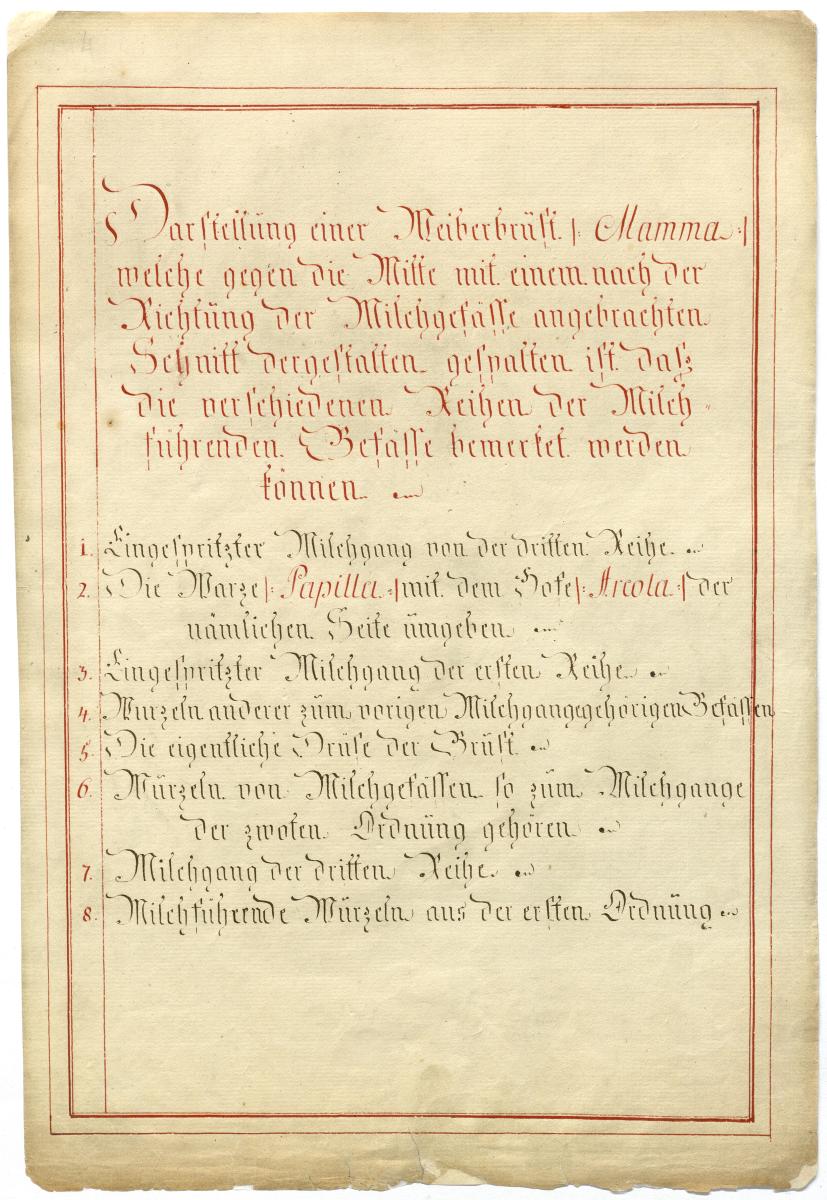 Darstellung einer Weiberbrust |: Mamma :|
welche gegen die Mitte mit einem nach der
Richtung der Milchgefässe angebrachten
Schnitt dergestalten gespalten ist daß
die verschiedenen Reihen der Milch=
führenden Gefässe bemerket werden
können.
1. Eingespritzter Milchgang von der dritten Reihe.
2. Die Warze |: Papilla :| mit dem Hofe |: Areola :| der
nämlichen Seite umgeben
3. Eingespritzter Milchgang der ersten Reihe.
4. Wurzeln anderer zum vorigen Milchgange gehörigen Gefässen
5. Die eigentliche Drüse der Brust
6. Wurzeln von Milchgefässen so zum Milchgange
der zwoten Ordnung gehören
7. Milchgang der dritten Reihe.
8. Milchführende Wurzeln aus der ersten Ordnung